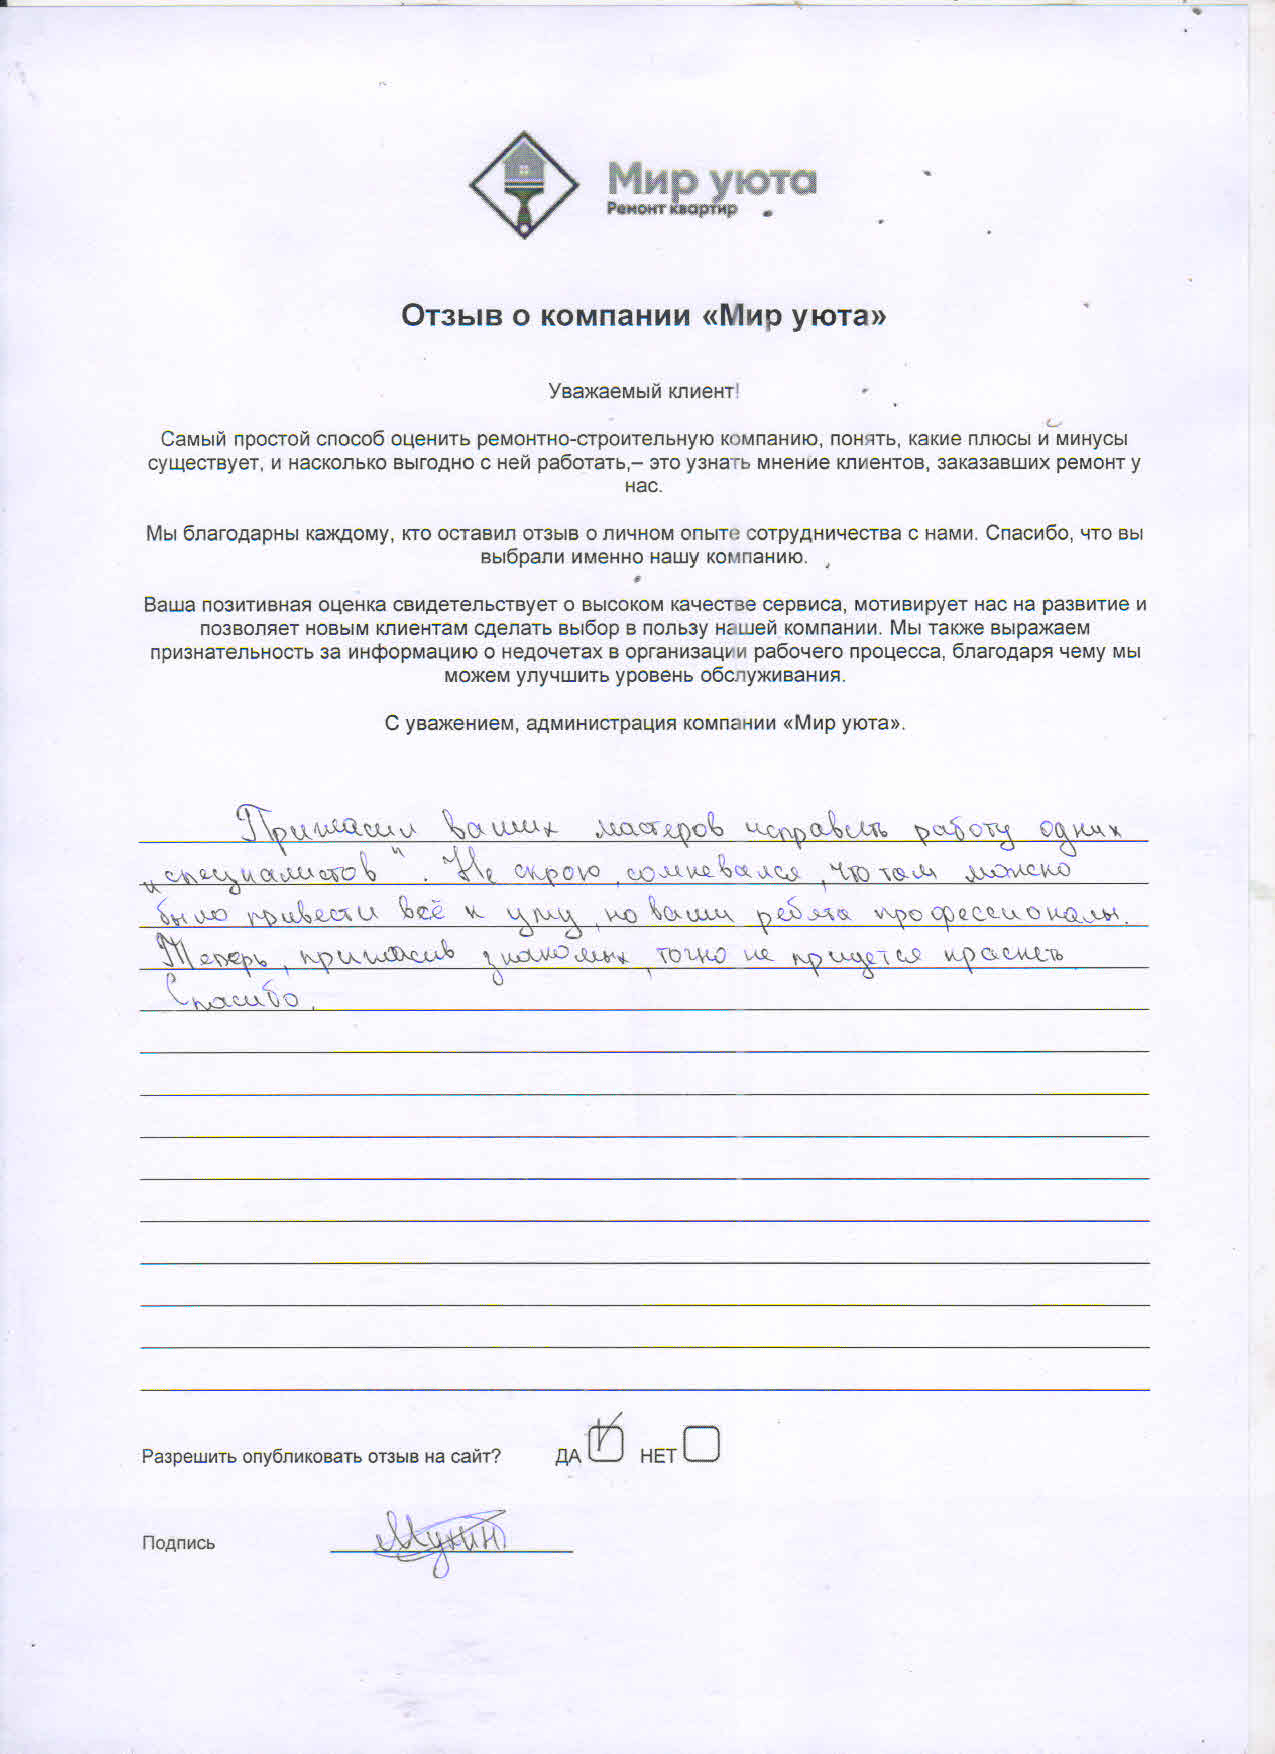 Мир уюта
Ремонт квартир
Отзыв о компании «Мир уюта»
Уважаемый клиент!
Самый простой способ оценить ремонтно-строительную компанию, понять, какие плюсы и минусы
существует, и насколько выгодно с ней работать,– это узнать мнение клиентов, заказавших ремонт у
нас.
Мы благодарны каждому, кто оставил отзыв о личном опыте сотрудничества с нами. Спасибо, что вы
выбрали именно нашу компанию.
Ваша позитивная оценка свидетельствует о высоком качестве сервиса, мотивирует нас на развитие и
позволяет новым клиентам сделать выбор в пользу нашей компании. Мы также выражаем
признательность за информацию о недочетах в организации рабочего процесса, благодаря чему мы
можем улучшить уровень обслуживания.
С уважением, администрация компании «Мир уюта».
Пригласил ваших мастеров исправить работу одних
„специалистов". Не скрою, сомневался, что там можно
было привести всё к уму, но ваши ребята профессионалы.
Теперь, пригласив знакомых, точно не придется краснеть
Спасибо.
Разрешить опубликовать отзыв на сайт? ДА НЕТ
Подпись Мухин